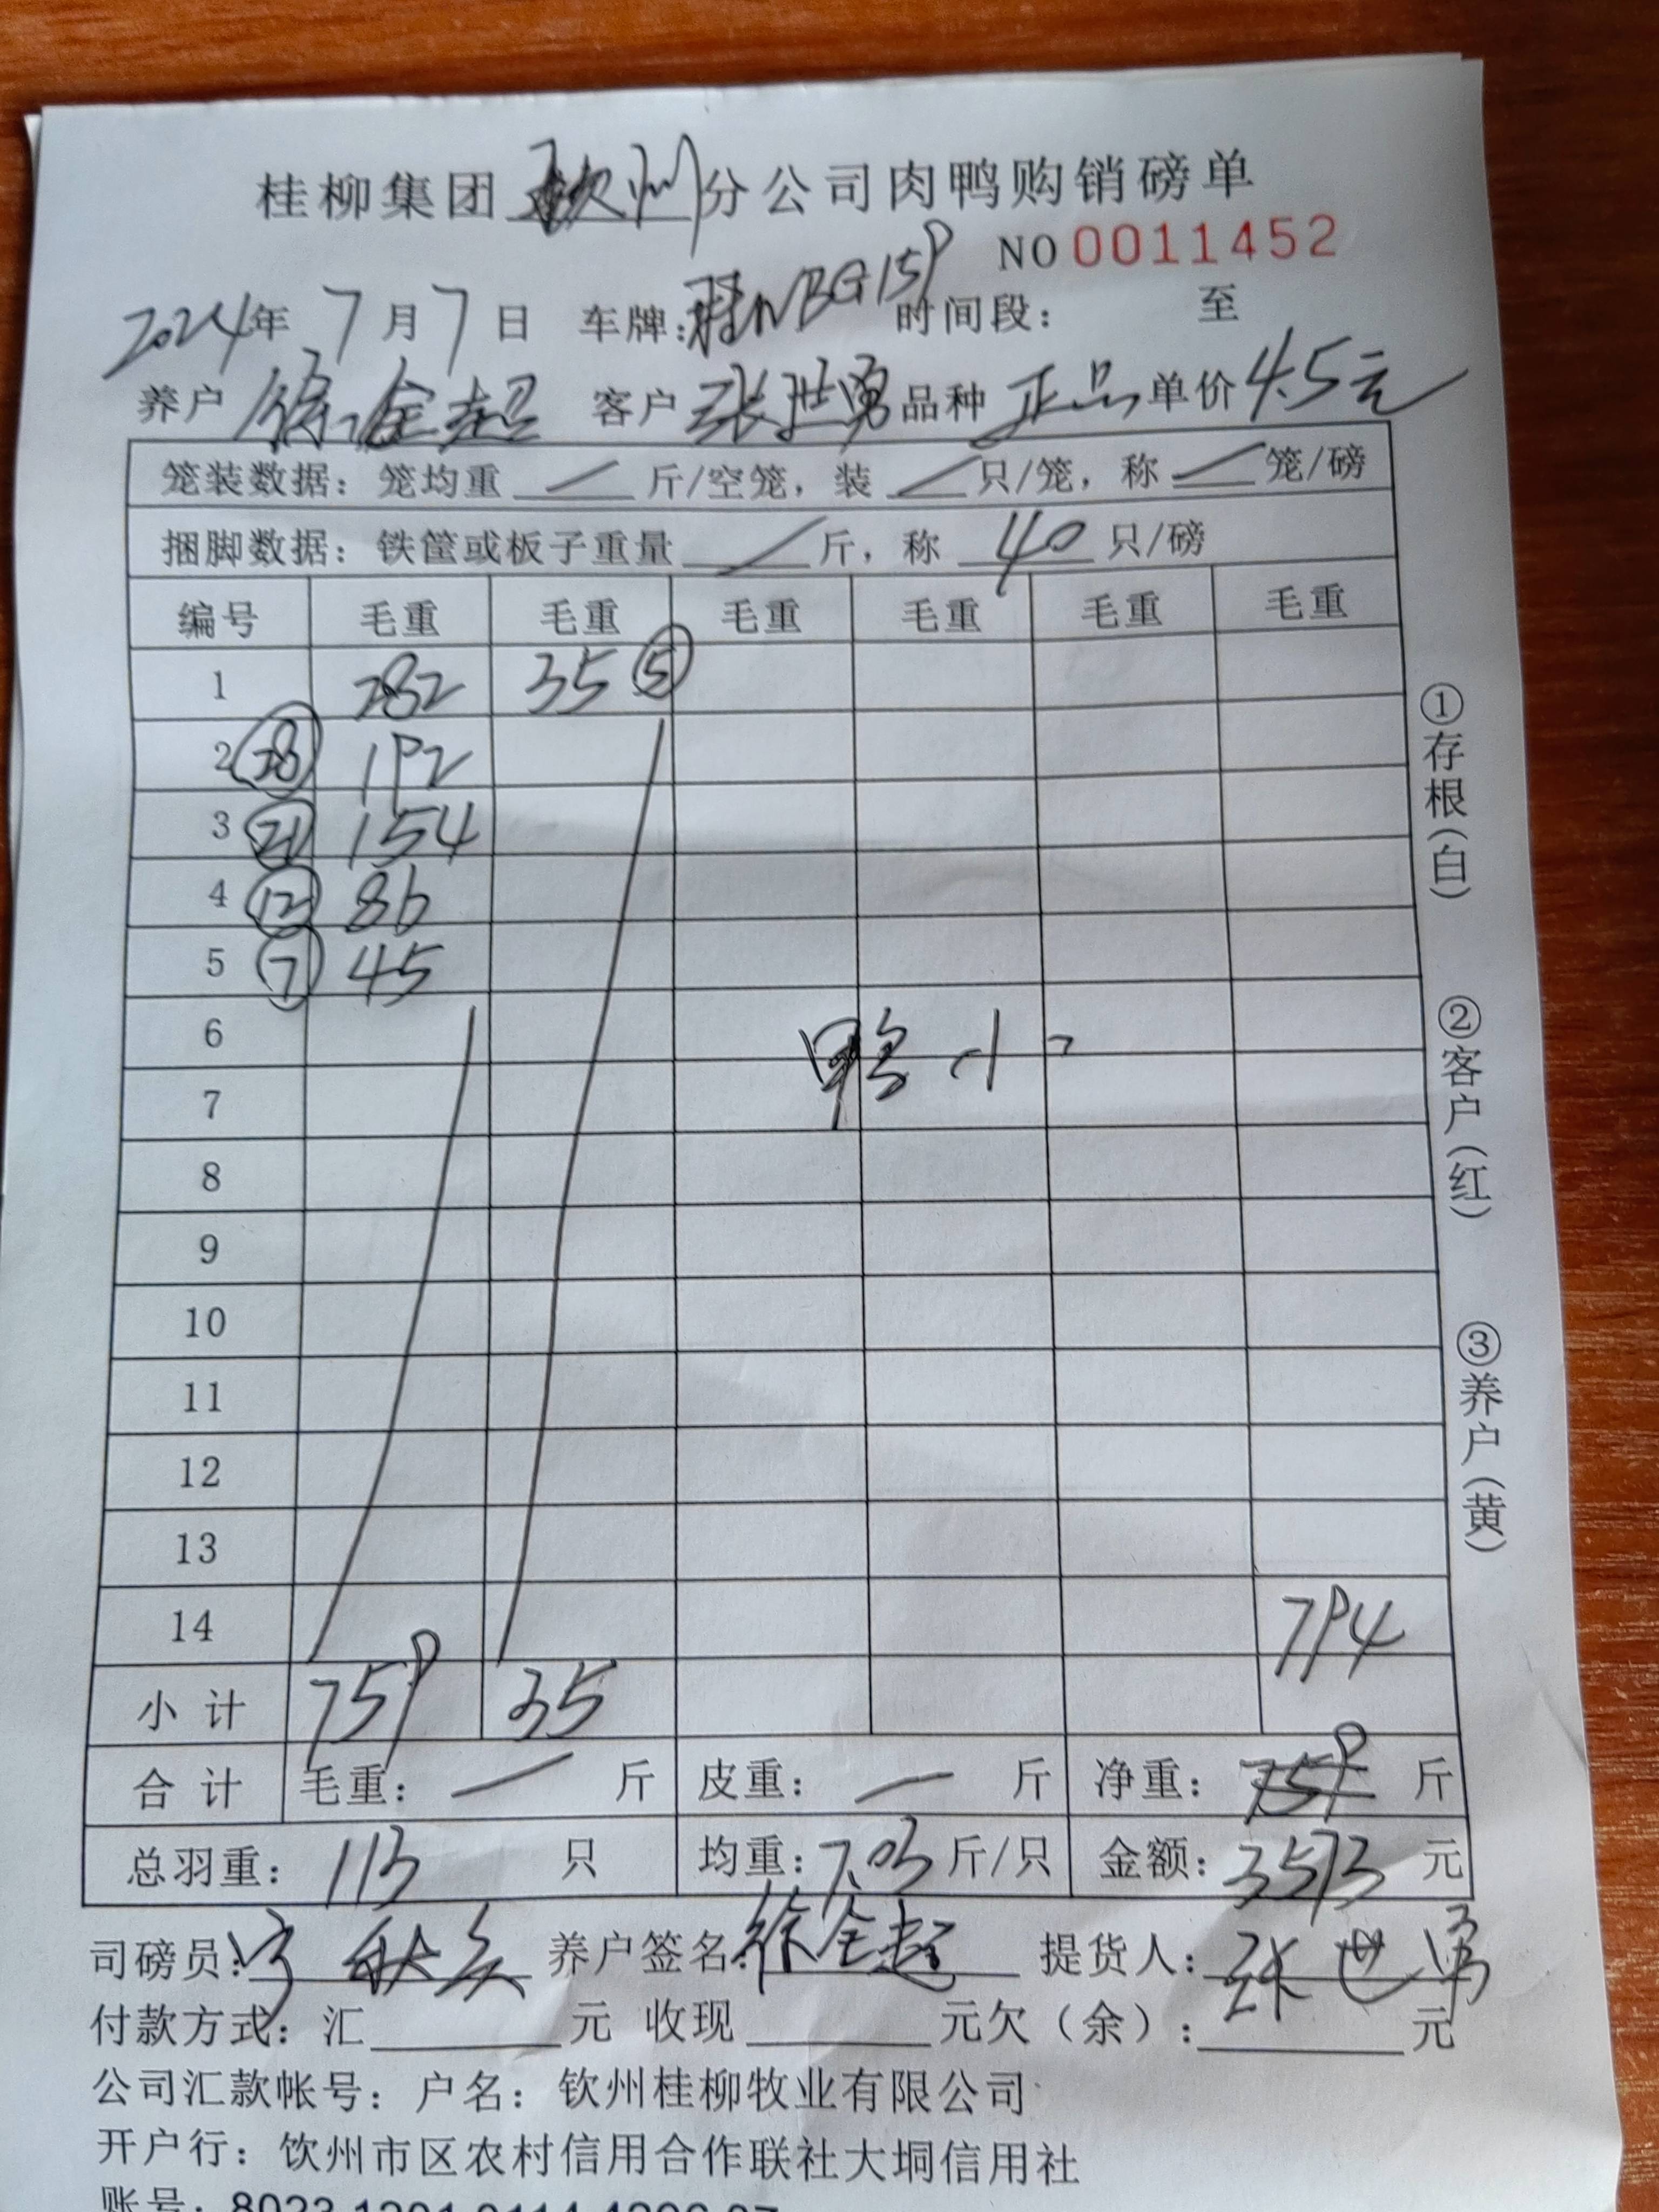 桂柳集团 钦州 分公司肉鸭购销磅单
NO 0011452
2024年 7月 7日 车牌:桂NBG159 时间段: 至
养户 徐全超 客户 张世勇 品种 正品 单价 4.5元
笼装数据: 笼均重 / 斤/空笼, 装 / 只/笼, 称 / 笼/磅
捆脚数据: 铁筐或板子重量 / 斤, 称 40 只/磅
编号 毛重 毛重 毛重 毛重 毛重 毛重
1 282 35 ⑤
2 ㉘ 192
3 ㉑ 154
4 ⑫ 86
5 ⑦ 45
6
鸭小
7
8
9
10
11
12
13
14 794
小计 759 35
合计 毛重: — 斤 皮重: — 斤 净重: 759 斤
总羽重: 113 只 均重: 7.03 斤/只 金额: 3573 元
司磅员: 养户签名: 徐全超 提货人: 张世勇
付款方式: 汇 元 收现 元欠(余): 元
公司汇款帐号: 户名: 钦州桂柳牧业有限公司
开户行: 钦州市区农村信用合作联社大垌信用社
账号: 8023
①存根(白)
②客户(红)
③养户(黄)